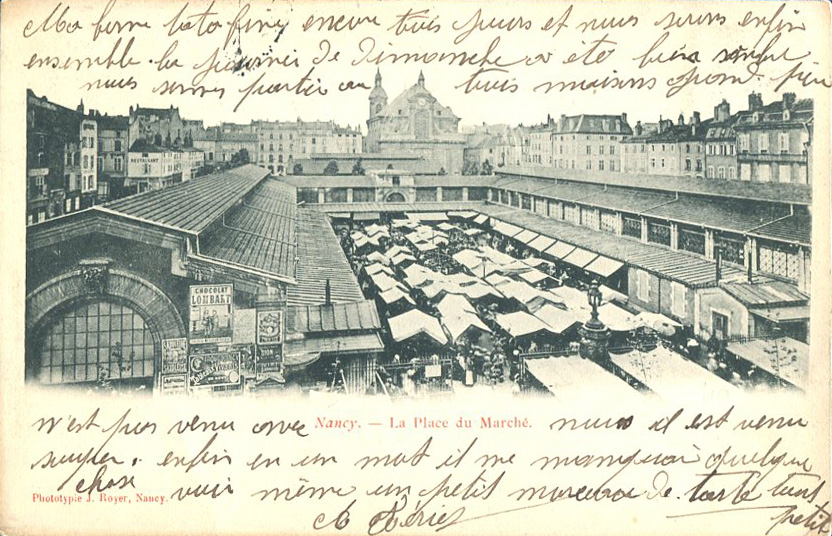 Ma bonne toto fine encore trois jours et nous serons enfin
ensemble. la journée de Dimanche a été bien
nous sommes partir au trois maisons grand
RESTAURANT
CHOCOLAT
LOMBART
n'est pas venu avec Nancy. — La Place du Marché. nous il est venu
souper. enfin en un mot il me manquai quelque
chose
Phototypie J. Royer, Nancy. voir même un petit morceau de tarte tout
petit